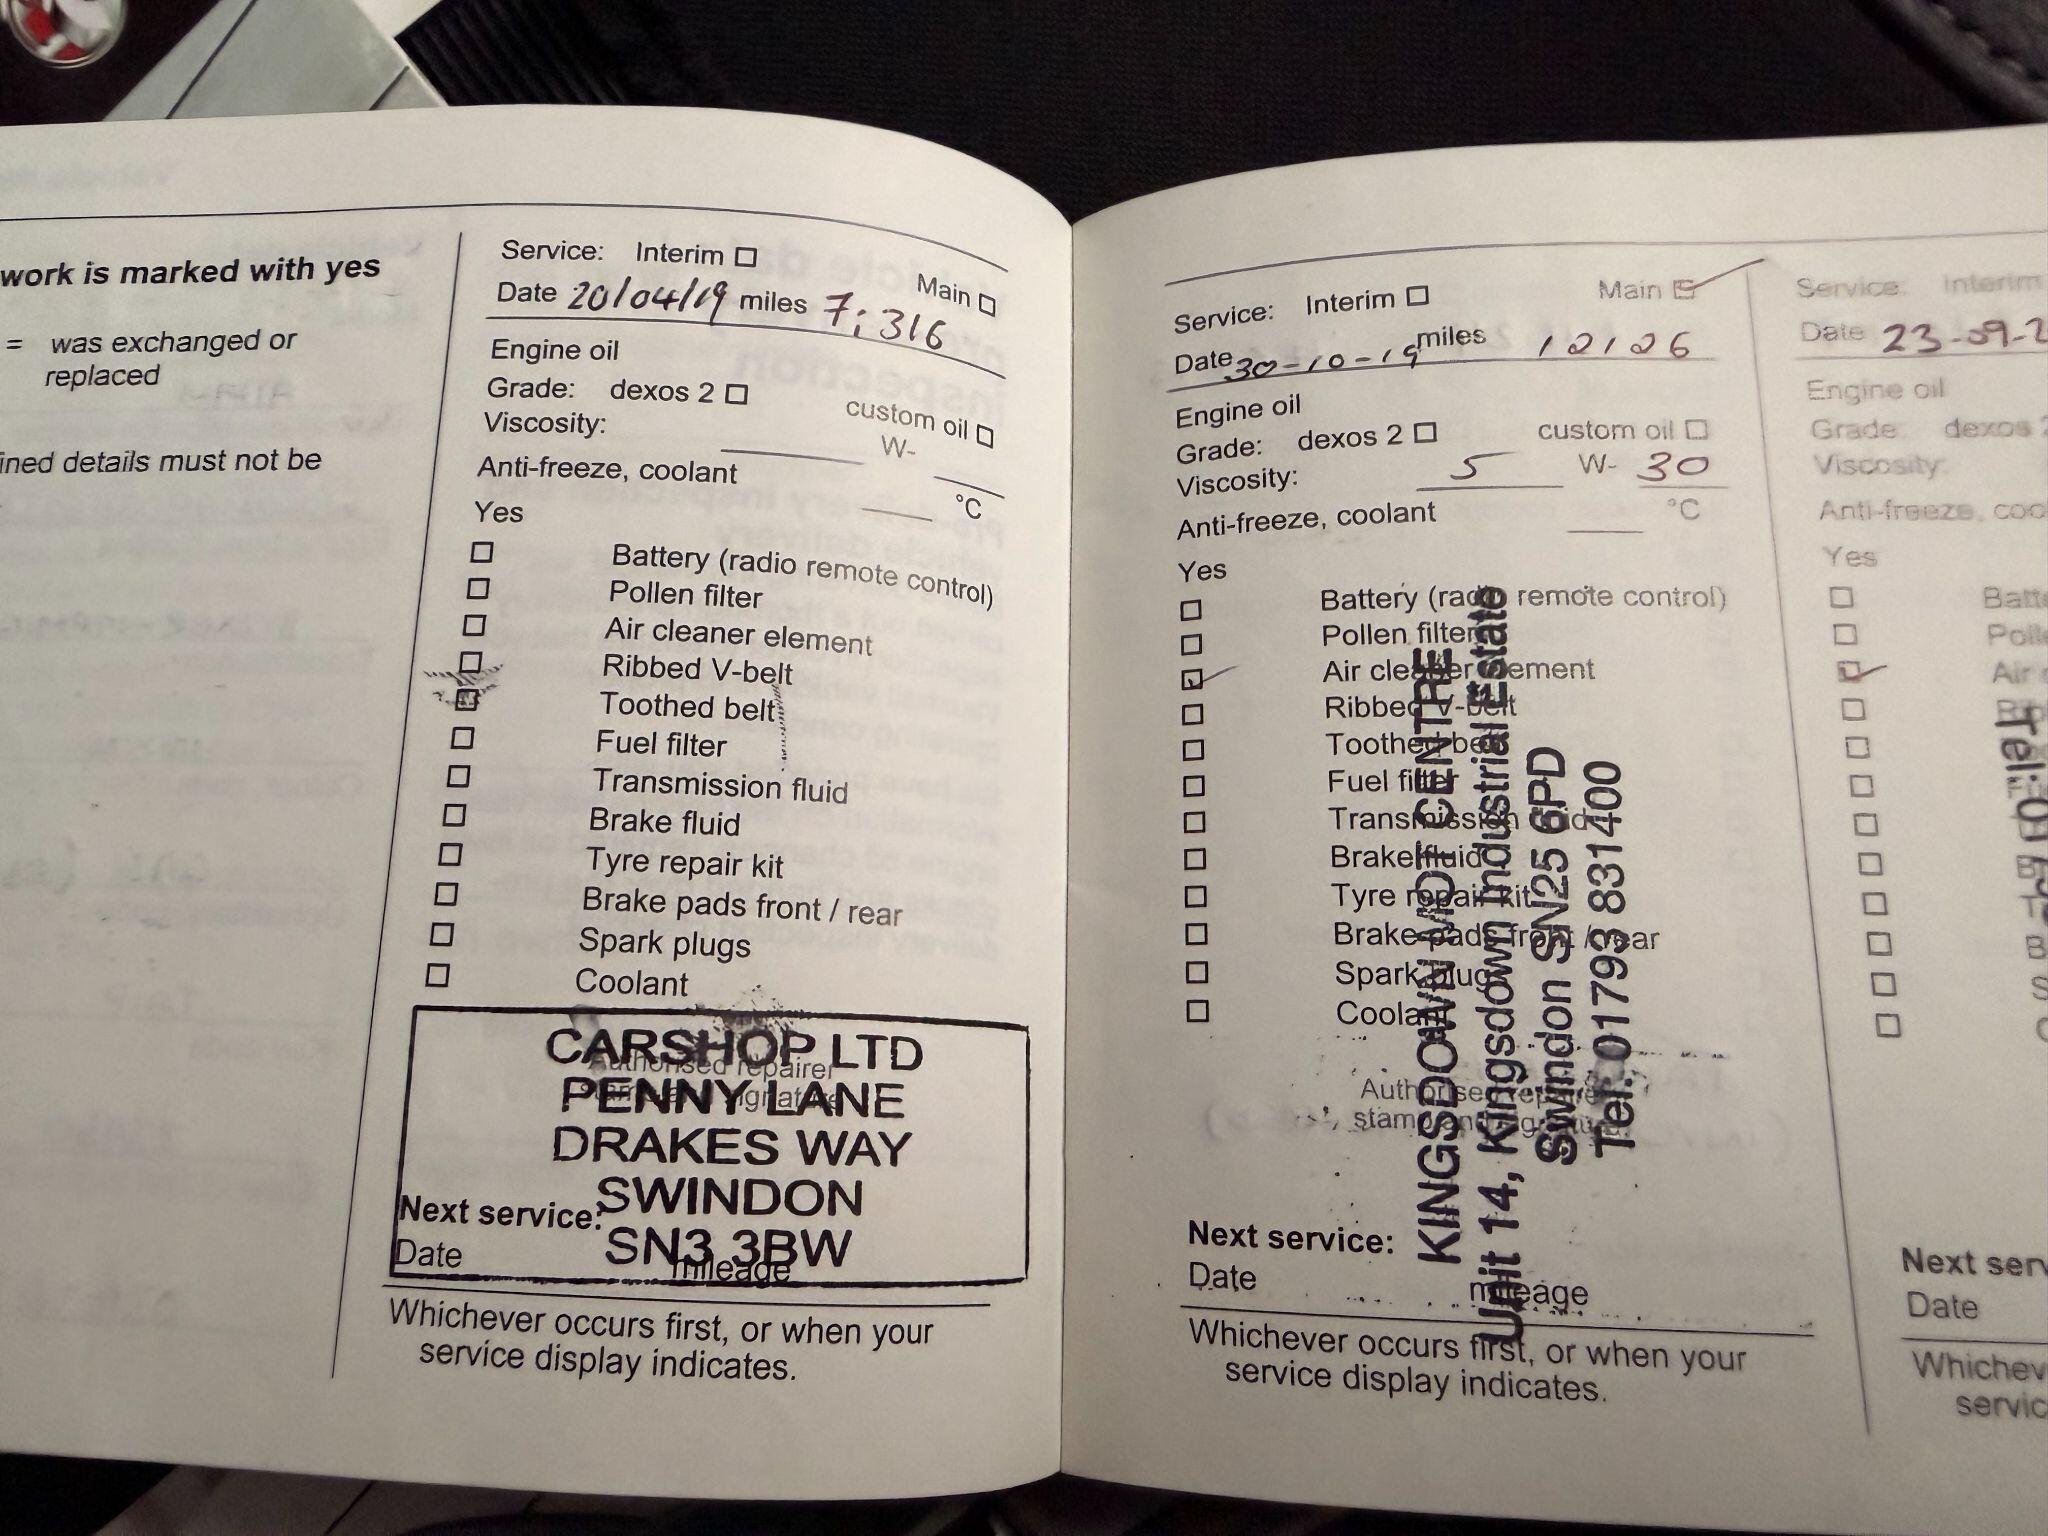 work is marked with yes
= was exchanged or
replaced
ined details must not be
Service: Interim ☐
Main ☐
Date 20/04/19 miles 7;316
Engine oil
Grade: dexos 2 ☐
custom oil ☐
Viscosity: W-
Anti-freeze, coolant °C
Yes
☐ Battery (radio remote control)
☐ Pollen filter
☐ Air cleaner element
☐ Ribbed V-belt
☐ Toothed belt
☐ Fuel filter
☐ Transmission fluid
☐ Brake fluid
☐ Tyre repair kit
☐ Brake pads front / rear
☐ Spark plugs
☐ Coolant
Authorised repairer
stamp and signature
CARSHOP LTD
PENNY LANE
DRAKES WAY
SWINDON
SN3 3BW
Next service:
Date mileage
Whichever occurs first, or when your
service display indicates.
Service: Interim ☐ Main ☑
Date 30-10-19 miles 12126
Engine oil
Grade: dexos 2 ☐ custom oil ☐
Viscosity: 5 W- 30
Anti-freeze, coolant °C
Yes
☐ Battery (radio remote control)
☐ Pollen filter
☑ Air cleaner element
☐ Ribbed V-belt
☐ Toothed belt
☐ Fuel filter
☐ Transmission fluid
☐ Brake fluid
☐ Tyre repair kit
☐ Brake pads front / rear
☐ Spark plugs
☐ Coolant
Authorised repairer
stamp and signature
KINGSDOWN MOT CENTRE
Unit 14, Kingsdown Industrial Estate
Swindon SN25 6PD
Tel: 01793 831400
Next service:
Date mileage
Whichever occurs first, or when your
service display indicates.
Service: Interim
Date 23-09-2
Engine oil
Grade: dexos 2
Viscosity:
Anti-freeze, coo
Yes
☐ Batte
☐ Polle
☑ Air c
Tel: 0
Next serv
Date
Whichev
servic